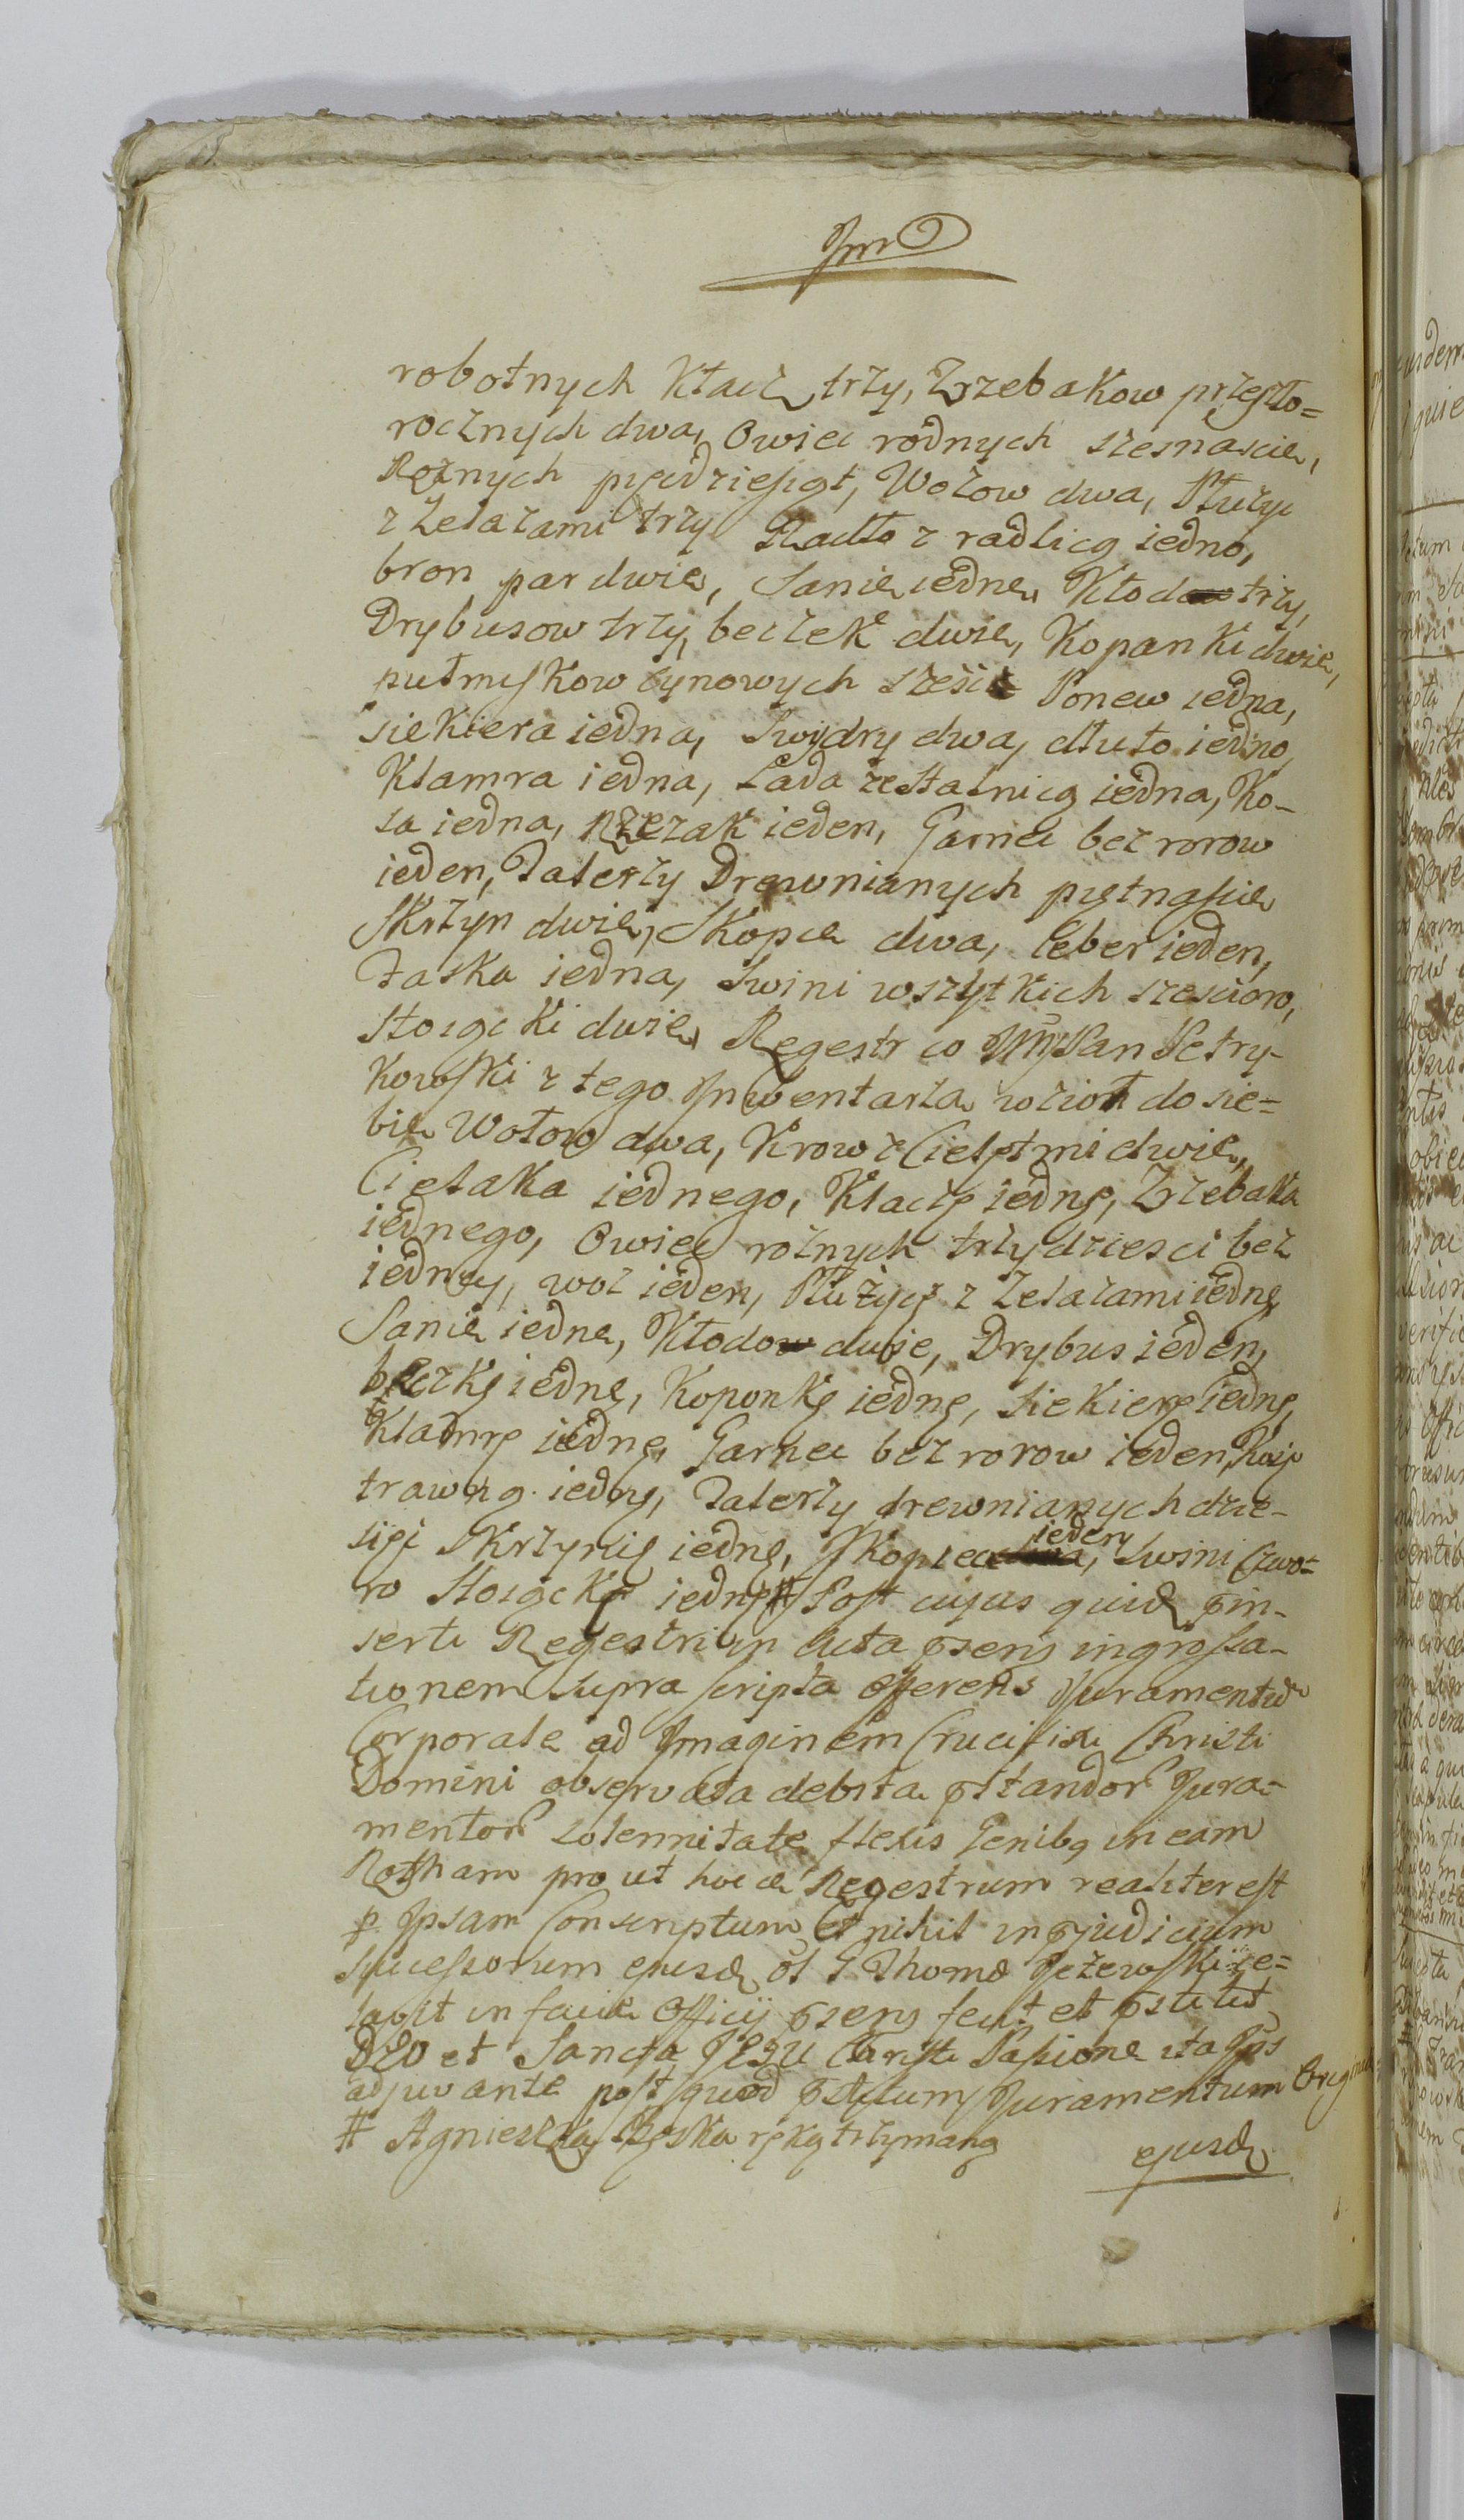 robotnych Klacz trzy, Zrzebakow przeszło=
rocznych dwa, Owiec rodnych szesnascie,
Roznych pięcdziesiąt, Wozow dwa, Płużyc
z Zelazami trzy Radło z radlicą iedno,
bron par dwie, Sanie iedne, Kłod trzy,
Drybusow trzy, beczek dwie, Kopanki dwie,
putmyskow cynowych sześć Ponew iedna,
siekiera iedna, Swydry dwa, dłuto iedno,
Klamra iedna, Lada ze stalnicą iedna, Ko-
sa iedna, Rzezak ieden, Garnec bez rorow
ieden, Talerzy Drewnianych piętnascie
Skrzyn dwie, Skopce dwa, Ceber ieden,
Faska iedna, Swini wszytkich szescioro,
Stoiącki dwie, Regestr co JMPan Petry-
kowski z tego Inwentarza wzioł do sie=
bie Wołow dwa, Krow z Cielętmi dwie,
Cielaka iednego, Klaczę iednę, Zrzebaka
iednego, Owiec roznych trzydziesci bez
iedney, woz ieden, Płużycę z Zelazami iednę
Sanie iedne, Kłodow dwie, Drybus ieden,
beczkę iednę, Koponkę iednę, siekierę iednę,
Klamrę iednę, Garnec bez rorow ieden, Kosę
trawną iednę, Talerzy drewnianych dzie-
sięć Skrzynię iednę, Skopiec ieden, Swini Czwo=
ro Stoiąckę iednę # Post cujus quidē pin-
serti Regestri in Acta pseng ingrossa-
tionem supra scripta offerens Juramentū
Corporale ad Imaginem Crucifixi Christi
Domini observata debita pstandor Jura=
mentor solennitate flexis Genibq in eam
Rotham pro ut hocce Regestrum realiter est
p Ipsam Conscriptum Et nihil in pjudicium
successorum ejusd ol G Thomæ Jeżewski re=
facie Officij pseng fecit et pstitit
DEO et Sancta JESU Christi Passione ita Ips
adjuvante post quod pstitum Juramentum Originale
# Agnieszka ręką trzymaną
ejusd